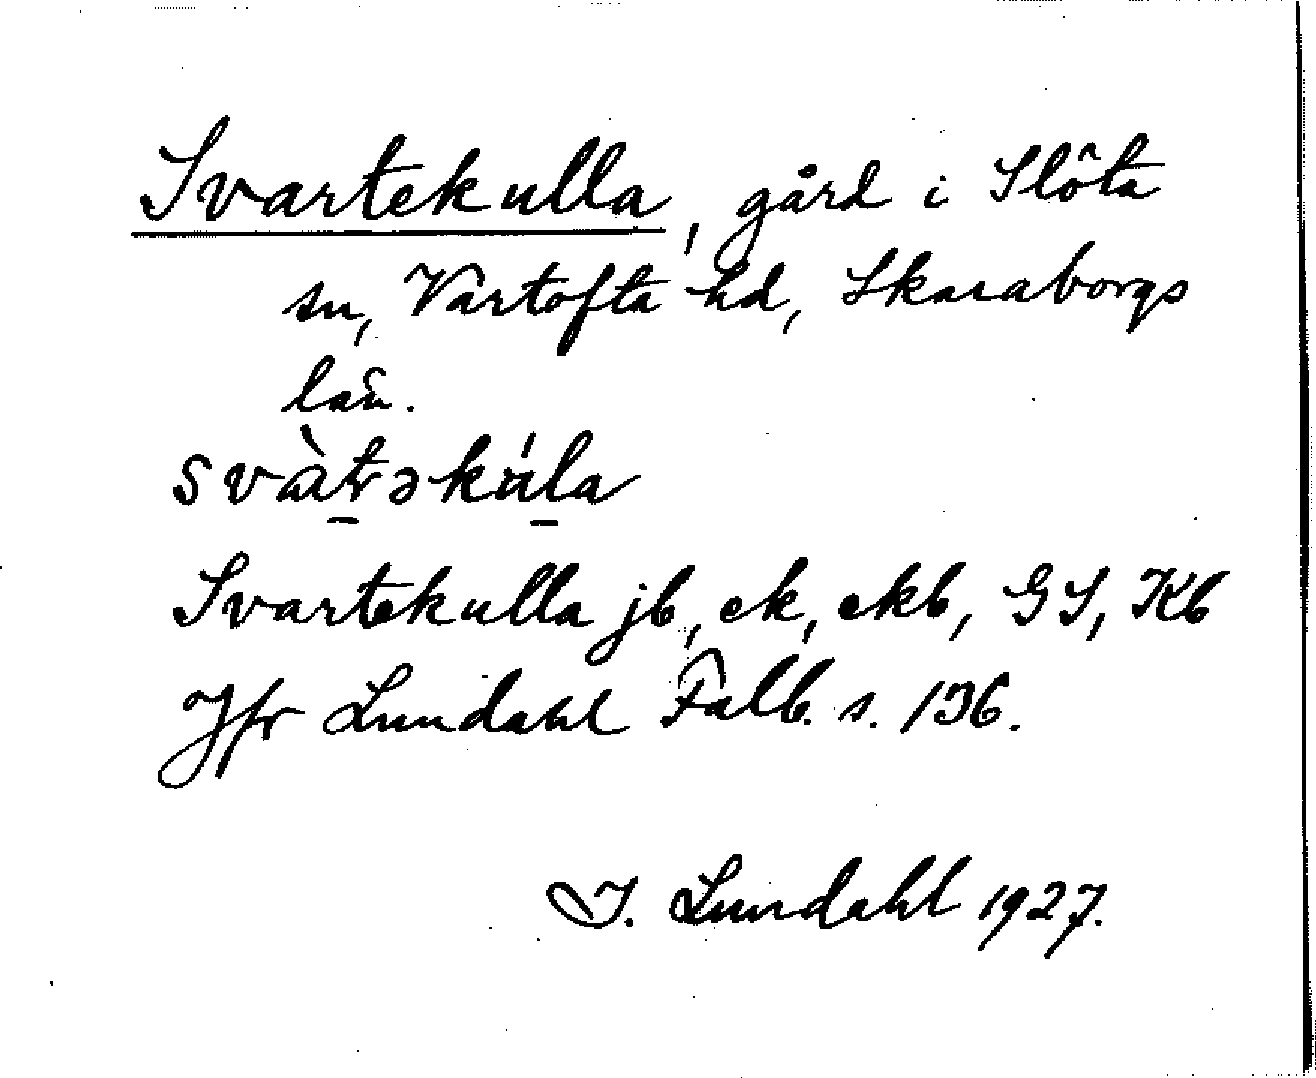 Svartekulla, gård i Slöta
sn, Vartofta hd, Skaraborgs
län.
svàtəkúla
Svartekulla jb, ek, ekb, GS, Kb
Jfr Lundahl Falb. s. 136.
I. Lundahl 1927.